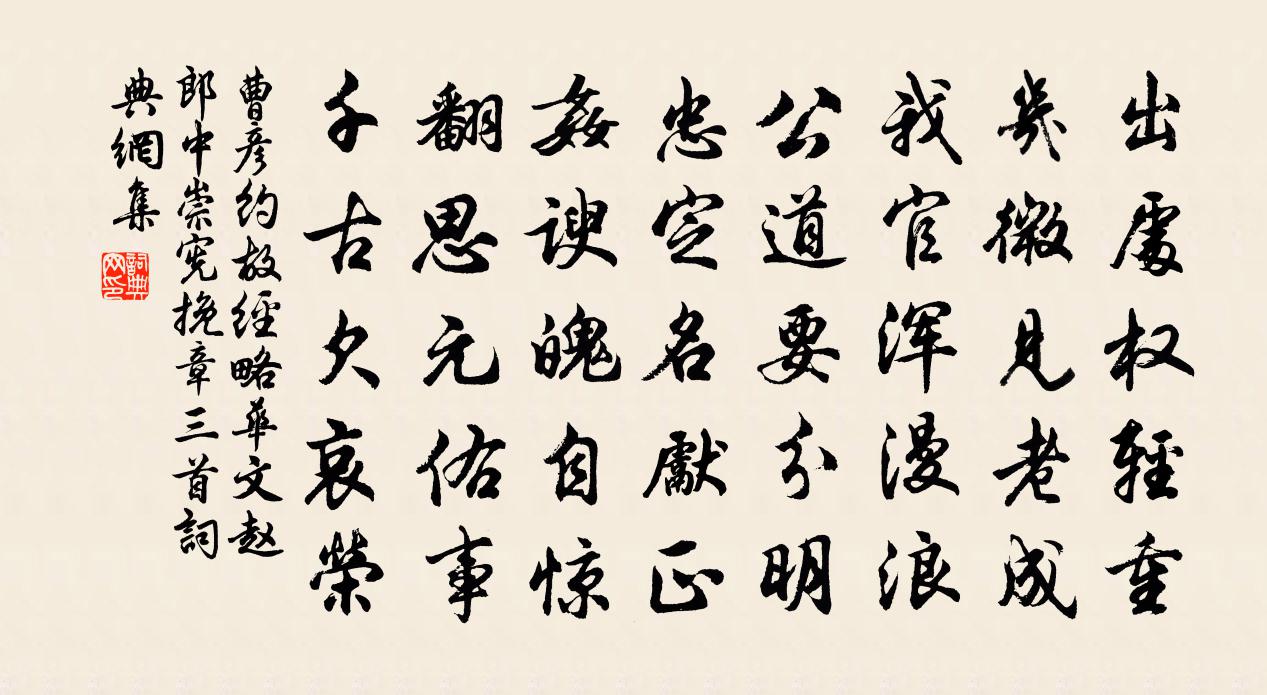 出處权輕重
幾微見老成
我官浑漫浪
公道要分明
忠定名獻正
姦諛魄自惊
翻思元佑事
千古欠哀榮
曹彦约故經略華文赵
郎中崇宪挽章三首詞
典網集
詞典网印